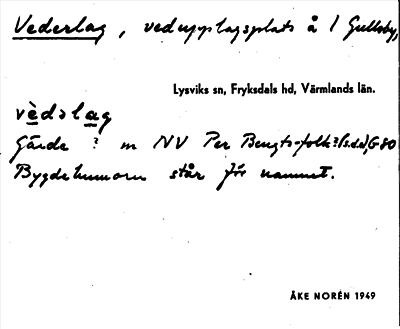 Vederlag, vedupplagsplats å 1 Gullsby,
Lysviks sn, Fryksdals hd, Värmlands län.
vèdəlag
Gärde ? m NV Per Bengts-folk? (s.d.), G 80
Bygdehumorn står för namnet.
ÅKE NORÉN 1949